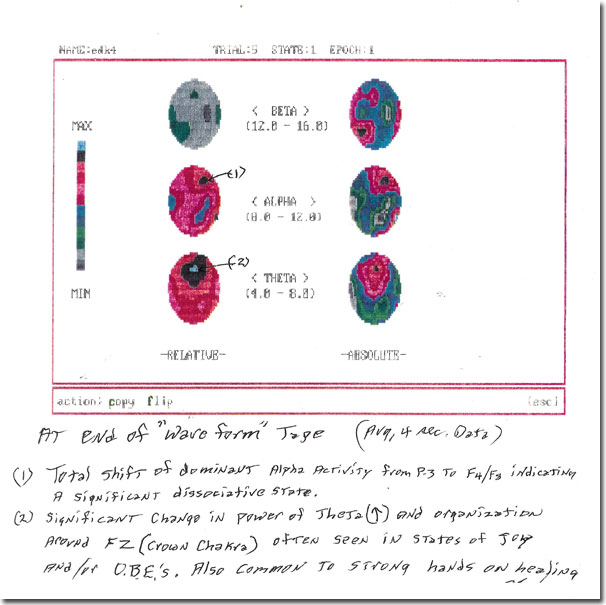 NAME:edk4 TRIAL:5 STATE:1 EPOCH:1
MAX
< BETA >
(12.0 - 16.0)
(1)
< ALPHA >
(8.0 - 12.0)
(2)
< THETA >
(4.0 - 8.0)
MIN
-RELATIVE- -ABSOLUTE-
action: copy flip (esc)
At end of "wave form" Tape (Avg, 4 sec. Data)
(1) Total shift of dominant Alpha Activity from P.3 To F4/F3 indicating
A significant dissociative state.
(2) Significant Change in power of Theta (↑) and organization
Around FZ (Crown Chakra) often seen in states of joy
and/or O.B.E.'s. Also common to strong hands on healing